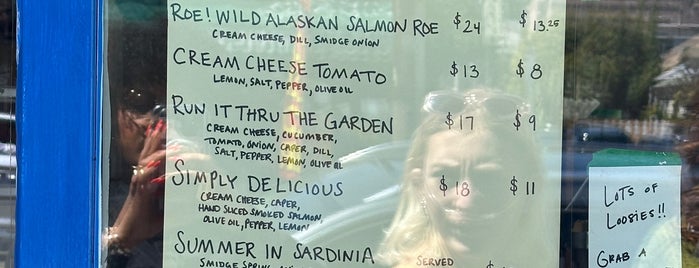 ROE! WILD ALASKAN SALMON ROE $24 $13.25
CREAM CHEESE, DILL, SMIDGE ONION
CREAM CHEESE TOMATO $13 $8
LEMON, SALT, PEPPER, OLIVE OIL
RUN IT THRU THE GARDEN $17 $9
CREAM CHEESE, CUCUMBER,
TOMATO, ONION, CAPER, DILL,
SALT, PEPPER, LEMON, OLIVE OIL
SIMPLY DELICIOUS $18 $11
CREAM CHEESE, CAPER,
HAND SLICED SMOKED SALMON,
OLIVE OIL, PEPPER, LEMON
SUMMER IN SARDINIA SERVED
SMIDGE
LOTS OF
LOOSIES!!
GRAB A